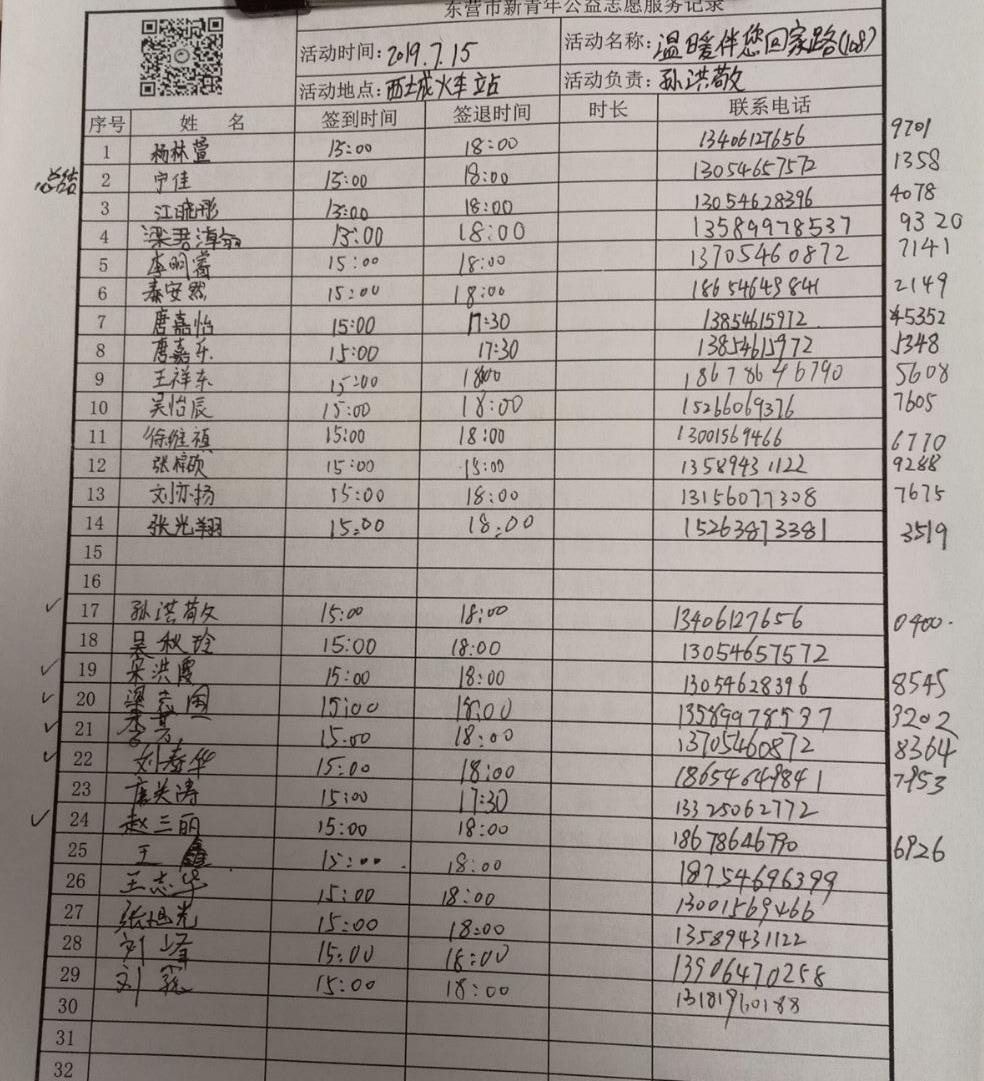 东营市新青年公益志愿服务记录
活动时间：2019.7.15 活动名称：温暖伴您回家路(108)
活动地点：西城火车站 活动负责：孙洪敬
序号 姓 名 签到时间 签退时间 时长 联系电话
1 杨林萱 15:00 18:00 13406127656 9701
总结 2 宁佳 15:00 18:00 13054657572 1358
3 江晓彤 15:00 18:00 13054628396 4078
4 梁君 15:00 18:00 13589978537 9320
5 李明睿 15:00 18:00 13705460872 7141
6 秦安然 15:00 18:00 18654649841 2149
7 唐嘉怡 15:00 17:30 13854615972 45352
8 唐嘉乐 15:00 17:30 13854615972 5348
9 王祥东 15:00 18:00 18678646790 5608
10 吴怡辰 15:00 18:00 15266069376 7605
11 徐维禛 15:00 18:00 13001569466 6770
12 张 硕 15:00 18:00 13589431122 9288
13 刘亦扬 15:00 18:00 13156077308 7675
14 张光翔 15:00 18:00 15263873381 3519
15
16
✓ 17 孙洪敬 15:00 18:00 13406127656 0400.
18 吴秋玲 15:00 18:00 13054657572
✓ 19 宋洪霞 15:00 18:00 13054628396 8545
✓ 20 梁志国 15:00 18:00 13589978537 3202
✓ 21 李芳 15:00 18:00 13705460872 8364
✓ 22 刘春华 15:00 18:00 18654649841 7953
23 唐关涛 15:00 17:30 13325062772
✓ 24 赵三丽 15:00 18:00 18678646790 6926
25 王鑫 15:00 18:00 18754696399
26 王志华 15:00 18:00 13001569466
27 张旭光 15:00 18:00 13589431122
28 刘峰 15:00 18:00 13906470258
29 刘 15:00 18:00 13181960188
30
31
32